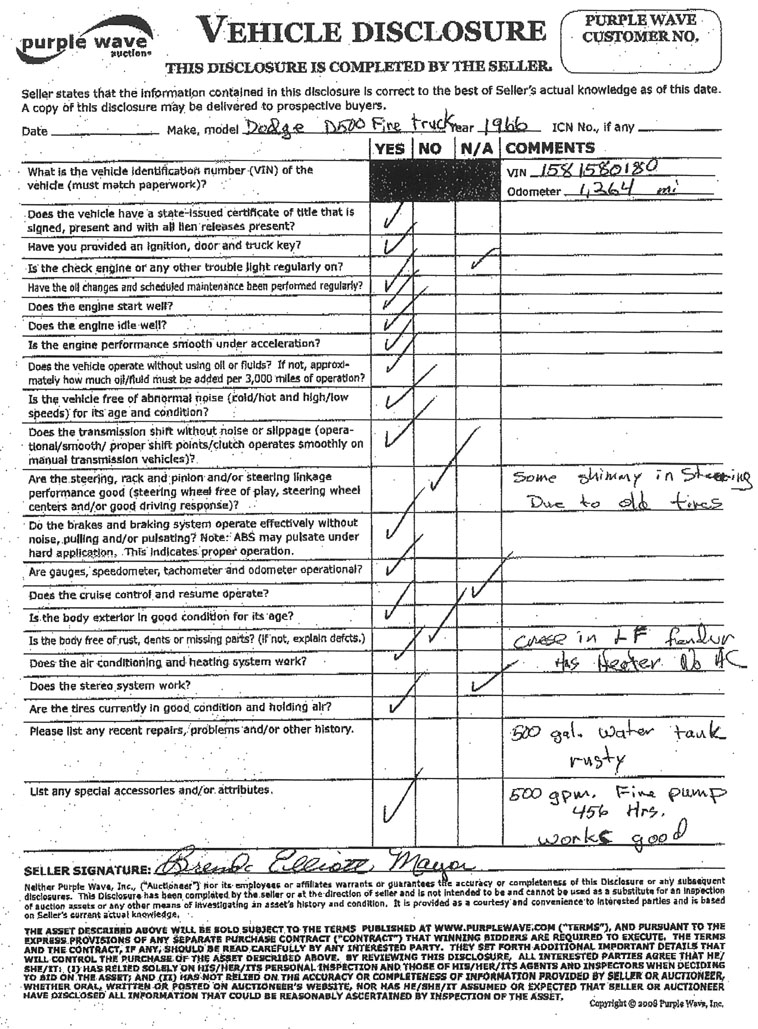 purple wave
auction®
VEHICLE DISCLOSURE
PURPLE WAVE
CUSTOMER NO.
THIS DISCLOSURE IS COMPLETED BY THE SELLER.
Seller states that the information contained in this disclosure is correct to the best of Seller's actual knowledge as of this date.
A copy of this disclosure may be delivered to prospective buyers.
Date Make, model Dodge D500 Fire truck Year 1966 ICN No., if any
YES NO N/A COMMENTS
What is the vehicle identification number (VIN) of the VIN 1581580180
vehicle (must match paperwork)? Odometer 1,264 mi
Does the vehicle have a state-issued certificate of title that is
signed, present and with all lien releases present?
Have you provided an ignition, door and truck key?
Is the check engine or any other trouble light regularly on?
Have the oil changes and scheduled maintenance been performed regularly?
Does the engine start well?
Does the engine idle well?
Is the engine performance smooth under acceleration?
Does the vehicle operate without using oil or fluids? If not, approxi-
mately how much oil/fluid must be added per 3,000 miles of operation?
Is the vehicle free of abnormal noise (cold/hot and high/low
speeds) for its age and condition?
Does the transmission shift without noise or slippage (opera-
tional/smooth/ proper shift points/clutch operates smoothly on
manual transmission vehicles)?
Are the steering, rack and pinion and/or steering linkage Some shimmy in Steering
performance good (steering wheel free of play, steering wheel
centers and/or good driving response)? Due to old tires
Do the brakes and braking system operate effectively without
noise, pulling and/or pulsating? Note: ABS may pulsate under
hard application. This indicates proper operation.
Are gauges, speedometer, tachometer and odometer operational?
Does the cruise control and resume operate?
Is the body exterior in good condition for its age?
Is the body free of rust, dents or missing parts? (if not, explain defcts.) in LF
Does the air conditioning and heating system work? Has Heater No AC
Does the stereo system work?
Are the tires currently in good condition and holding air?
Please list any recent repairs, problems and/or other history. 500 gal. Water tank
rusty
List any special accessories and/or attributes. 500 gpm. Fire pump
456 Hrs.
works good
SELLER SIGNATURE: Brenda Elliott Mayor
Neither Purple Wave, Inc., ("Auctioneer") nor its employees or affiliates warrants or guarantees the accuracy or completeness of this Disclosure or any subsequent
disclosures. This Disclosure has been completed by the seller or at the direction of seller and is not intended to be and cannot be used as a substitute for an inspection
of auction assets or any other means of investigating an asset's history and condition. It is provided as a courtesy and convenience to interested parties and is based
on Seller's current actual knowledge.
THE ASSET DESCRIBED ABOVE WILL BE SOLD SUBJECT TO THE TERMS PUBLISHED AT WWW.PURPLEWAVE.COM ("TERMS"), AND PURSUANT TO THE
EXPRESS PROVISIONS OF ANY SEPARATE PURCHASE CONTRACT ("CONTRACT") THAT WINNING BIDDERS ARE REQUIRED TO EXECUTE. THE TERMS
AND THE CONTRACT, IF ANY, SHOULD BE READ CAREFULLY BY ANY INTERESTED PARTY. THEY SET FORTH ADDITIONAL IMPORTANT DETAILS THAT
WILL CONTROL THE PURCHASE OF THE ASSET DESCRIBED ABOVE. BY REVIEWING THIS DISCLOSURE, ALL INTERESTED PARTIES AGREE THAT HE/
SHE/IT: (I) HAS RELIED SOLELY ON HIS/HER/ITS PERSONAL INSPECTION AND THOSE OF HIS/HER/ITS AGENTS AND INSPECTORS WHEN DECIDING
TO BID ON THE ASSET; AND (II) HAS NOT RELIED ON THE ACCURACY OR COMPLETENESS OF INFORMATION PROVIDED BY SELLER OR AUCTIONEER,
WHETHER ORAL, WRITTEN OR POSTED ON AUCTIONEER'S WEBSITE, NOR HAS HE/SHE/IT ASSUMED OR EXPECTED THAT SELLER OR AUCTIONEER
HAVE DISCLOSED ALL INFORMATION THAT COULD BE REASONABLY ASCERTAINED BY INSPECTION OF THE ASSET.
Copyright © 2008 Purple Wave, Inc.